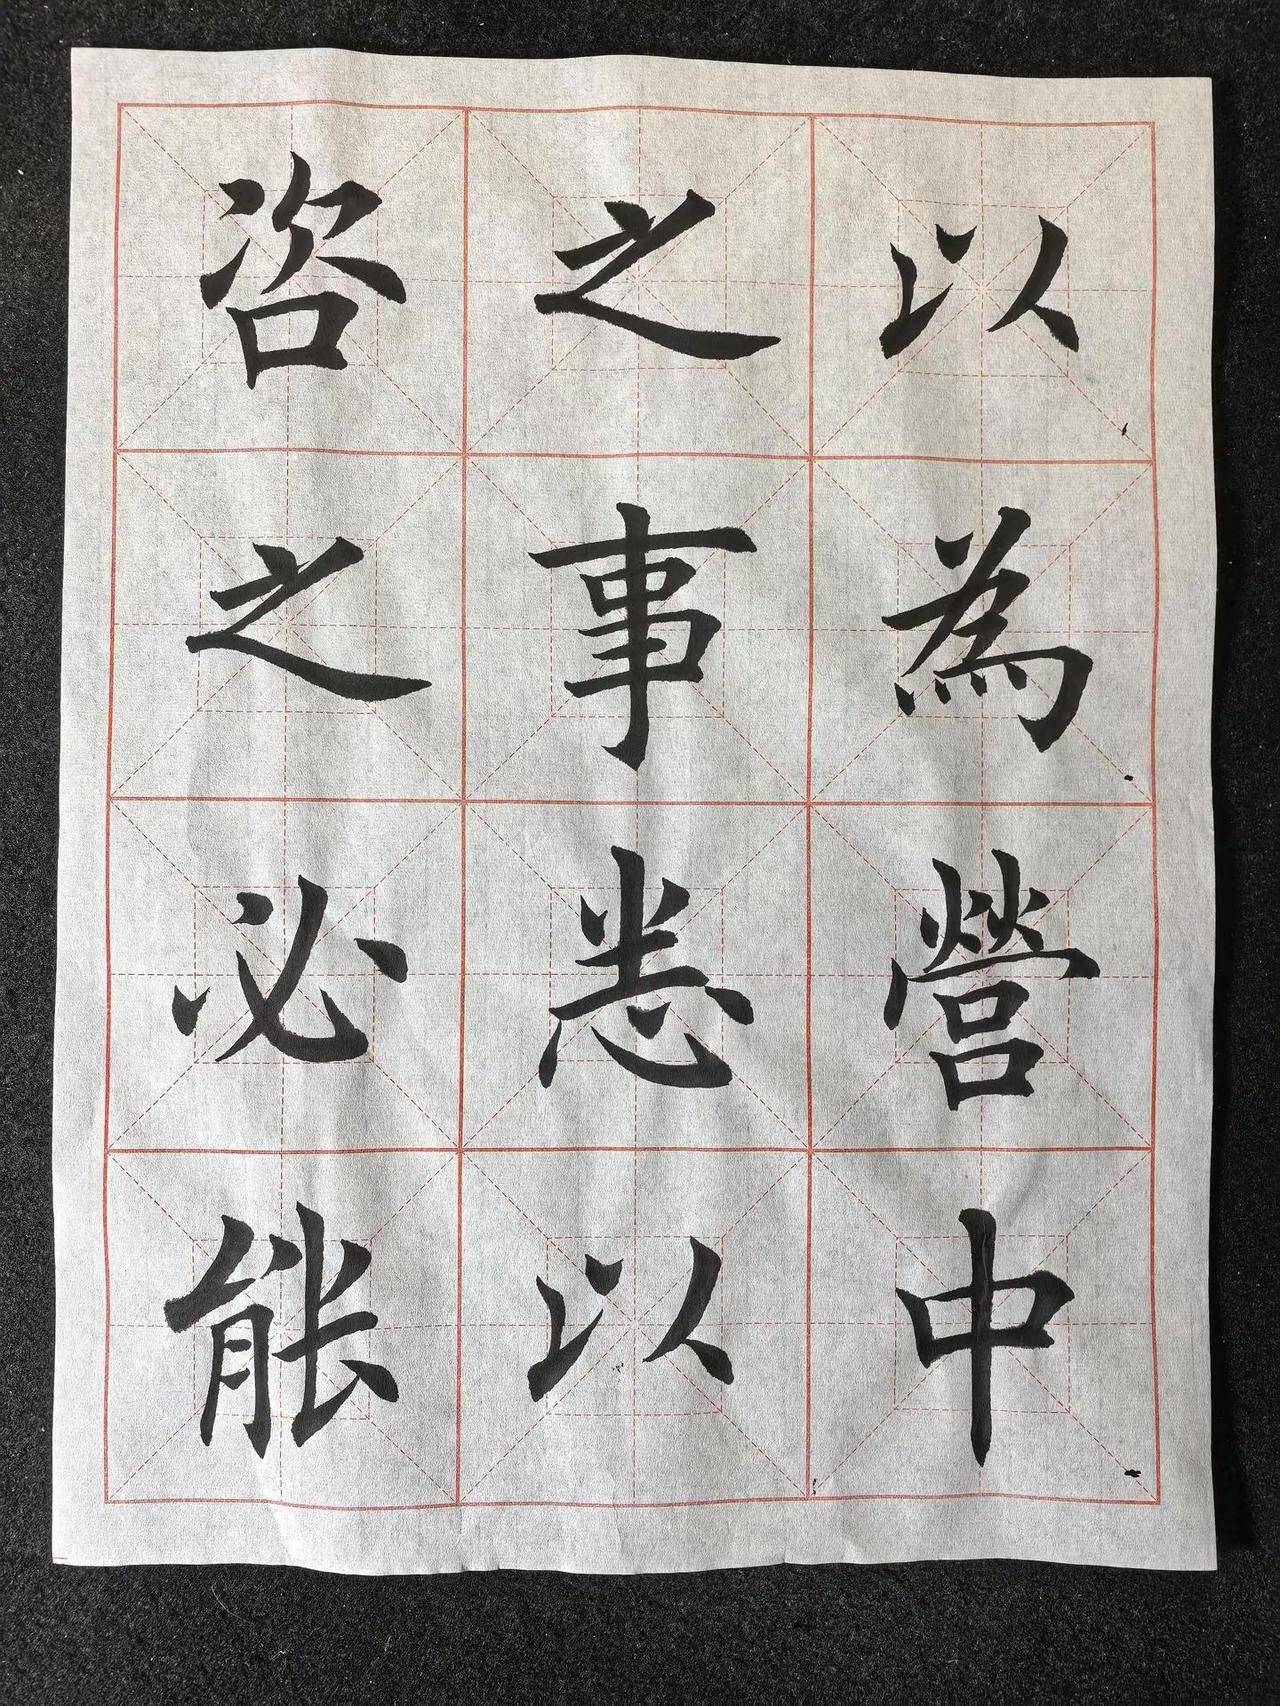 以為營中
之事悉以
咨之必能